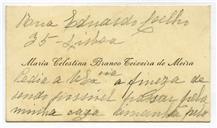 Rua Eduardo Coelho
35-Lisboa
Maria Celestina Branco Teixeira de Meira
Pedia a V. Exª a fineza de
sendo possivel passar pela
minha casa amanhã pelo